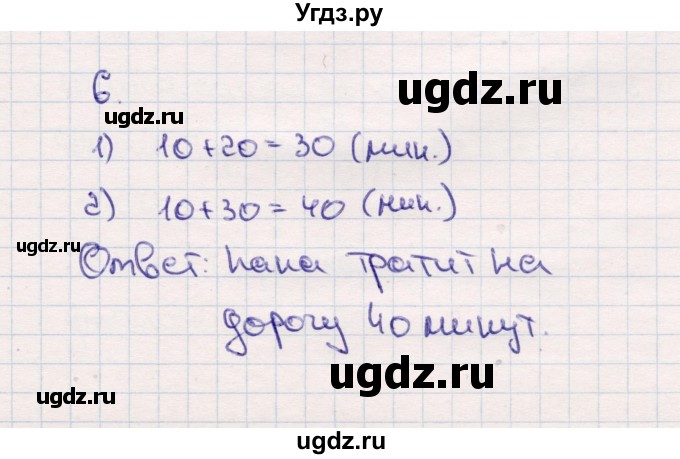 Угдз.ру
6.
ugdz.ru
ugdz.ru
1) 10+20=30 (мин.)
2) 10+30=40 (мин.)
ugdz.ru
Ответ: папа тратит на
дорогу 40 минут.
ugdz.ru
ugdz.ru
ugdz.ru